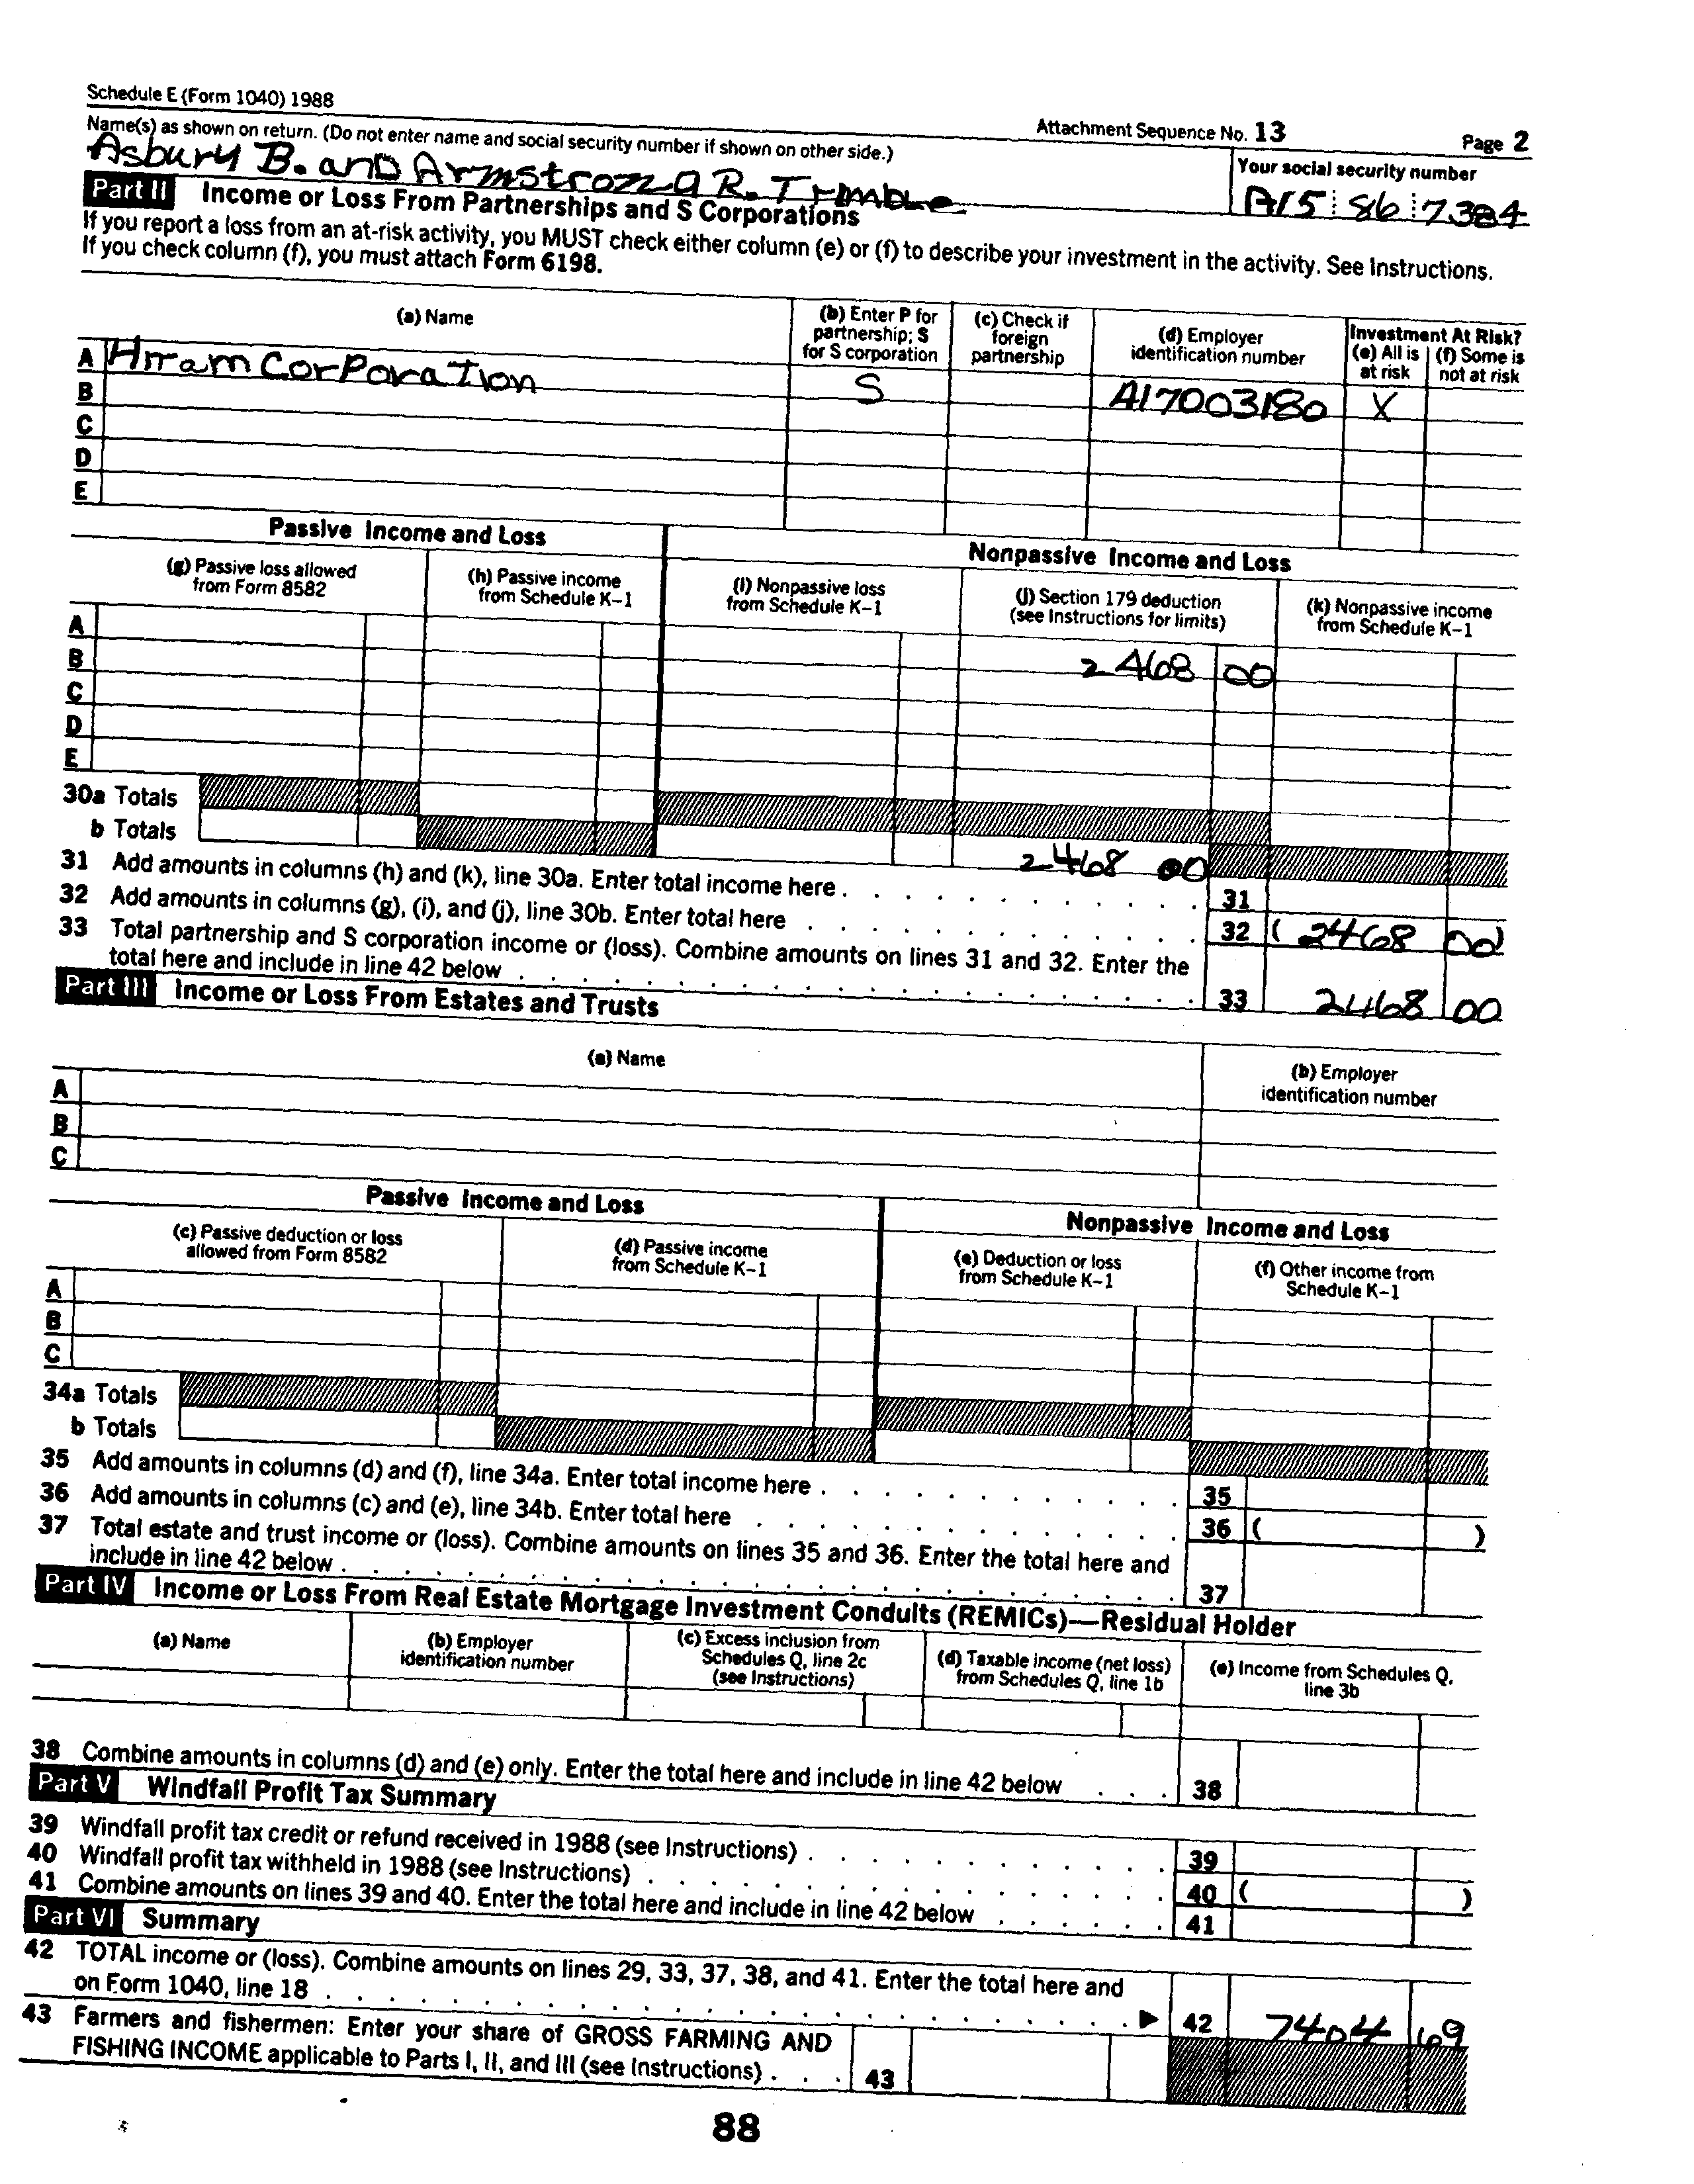 Schedule E (Form 1040) 1988
Attachment Sequence No. 13
Page 2
Name(s) as shown on return. (Do not enter name and social security number if shown on other side.)
Your social security number
Asbury B. and Armstrong R. Trimble
A15 86 7384
Part II Income or Loss From Partnerships and S Corporations
If you report a loss from an at-risk activity, you MUST check either column (e) or (f) to describe your investment in the activity. See Instructions.
If you check column (f), you must attach Form 6198.
(a) Name
(b) Enter P for partnership; S for S corporation
(c) Check if foreign partnership
(d) Employer identification number
Investment At Risk?
(e) All is at risk
(f) Some is not at risk
A Hiram Corporation S A17003180 X
B
C
D
E
Passive Income and Loss
Nonpassive Income and Loss
(g) Passive loss allowed from Form 8582
(h) Passive income from Schedule K-1
(i) Nonpassive loss from Schedule K-1
(j) Section 179 deduction (see Instructions for limits)
(k) Nonpassive income from Schedule K-1
A 2468 00
B
C
D
E
30a Totals
b Totals 2468 00
31 Add amounts in columns (h) and (k), line 30a. Enter total income here . 31
32 Add amounts in columns (g), (i), and (j), line 30b. Enter total here 32 ( 2468 00)
33 Total partnership and S corporation income or (loss). Combine amounts on lines 31 and 32. Enter the
total here and include in line 42 below 33 2468 00
Part III Income or Loss From Estates and Trusts
(a) Name
(b) Employer identification number
A
B
C
Passive Income and Loss
Nonpassive Income and Loss
(c) Passive deduction or loss allowed from Form 8582
(d) Passive income from Schedule K-1
(e) Deduction or loss from Schedule K-1
(f) Other income from Schedule K-1
A
B
C
34a Totals
b Totals
35 Add amounts in columns (d) and (f), line 34a. Enter total income here . 35
36 Add amounts in columns (c) and (e), line 34b. Enter total here 36 ( )
37 Total estate and trust income or (loss). Combine amounts on lines 35 and 36. Enter the total here and
include in line 42 below . 37
Part IV Income or Loss From Real Estate Mortgage Investment Conduits (REMICs)—Residual Holder
(a) Name
(b) Employer identification number
(c) Excess inclusion from Schedules Q, line 2c (see Instructions)
(d) Taxable income (net loss) from Schedules Q, line 1b
(e) Income from Schedules Q, line 3b
38 Combine amounts in columns (d) and (e) only. Enter the total here and include in line 42 below . . . 38
Part V Windfall Profit Tax Summary
39 Windfall profit tax credit or refund received in 1988 (see Instructions) . 39
40 Windfall profit tax withheld in 1988 (see Instructions) . 40 ( )
41 Combine amounts on lines 39 and 40. Enter the total here and include in line 42 below 41
Part VI Summary
42 TOTAL income or (loss). Combine amounts on lines 29, 33, 37, 38, and 41. Enter the total here and
on Form 1040, line 18 ▶ 42 7404 69
43 Farmers and fishermen: Enter your share of GROSS FARMING AND
FISHING INCOME applicable to Parts I, II, and III (see Instructions) . . . 43
88